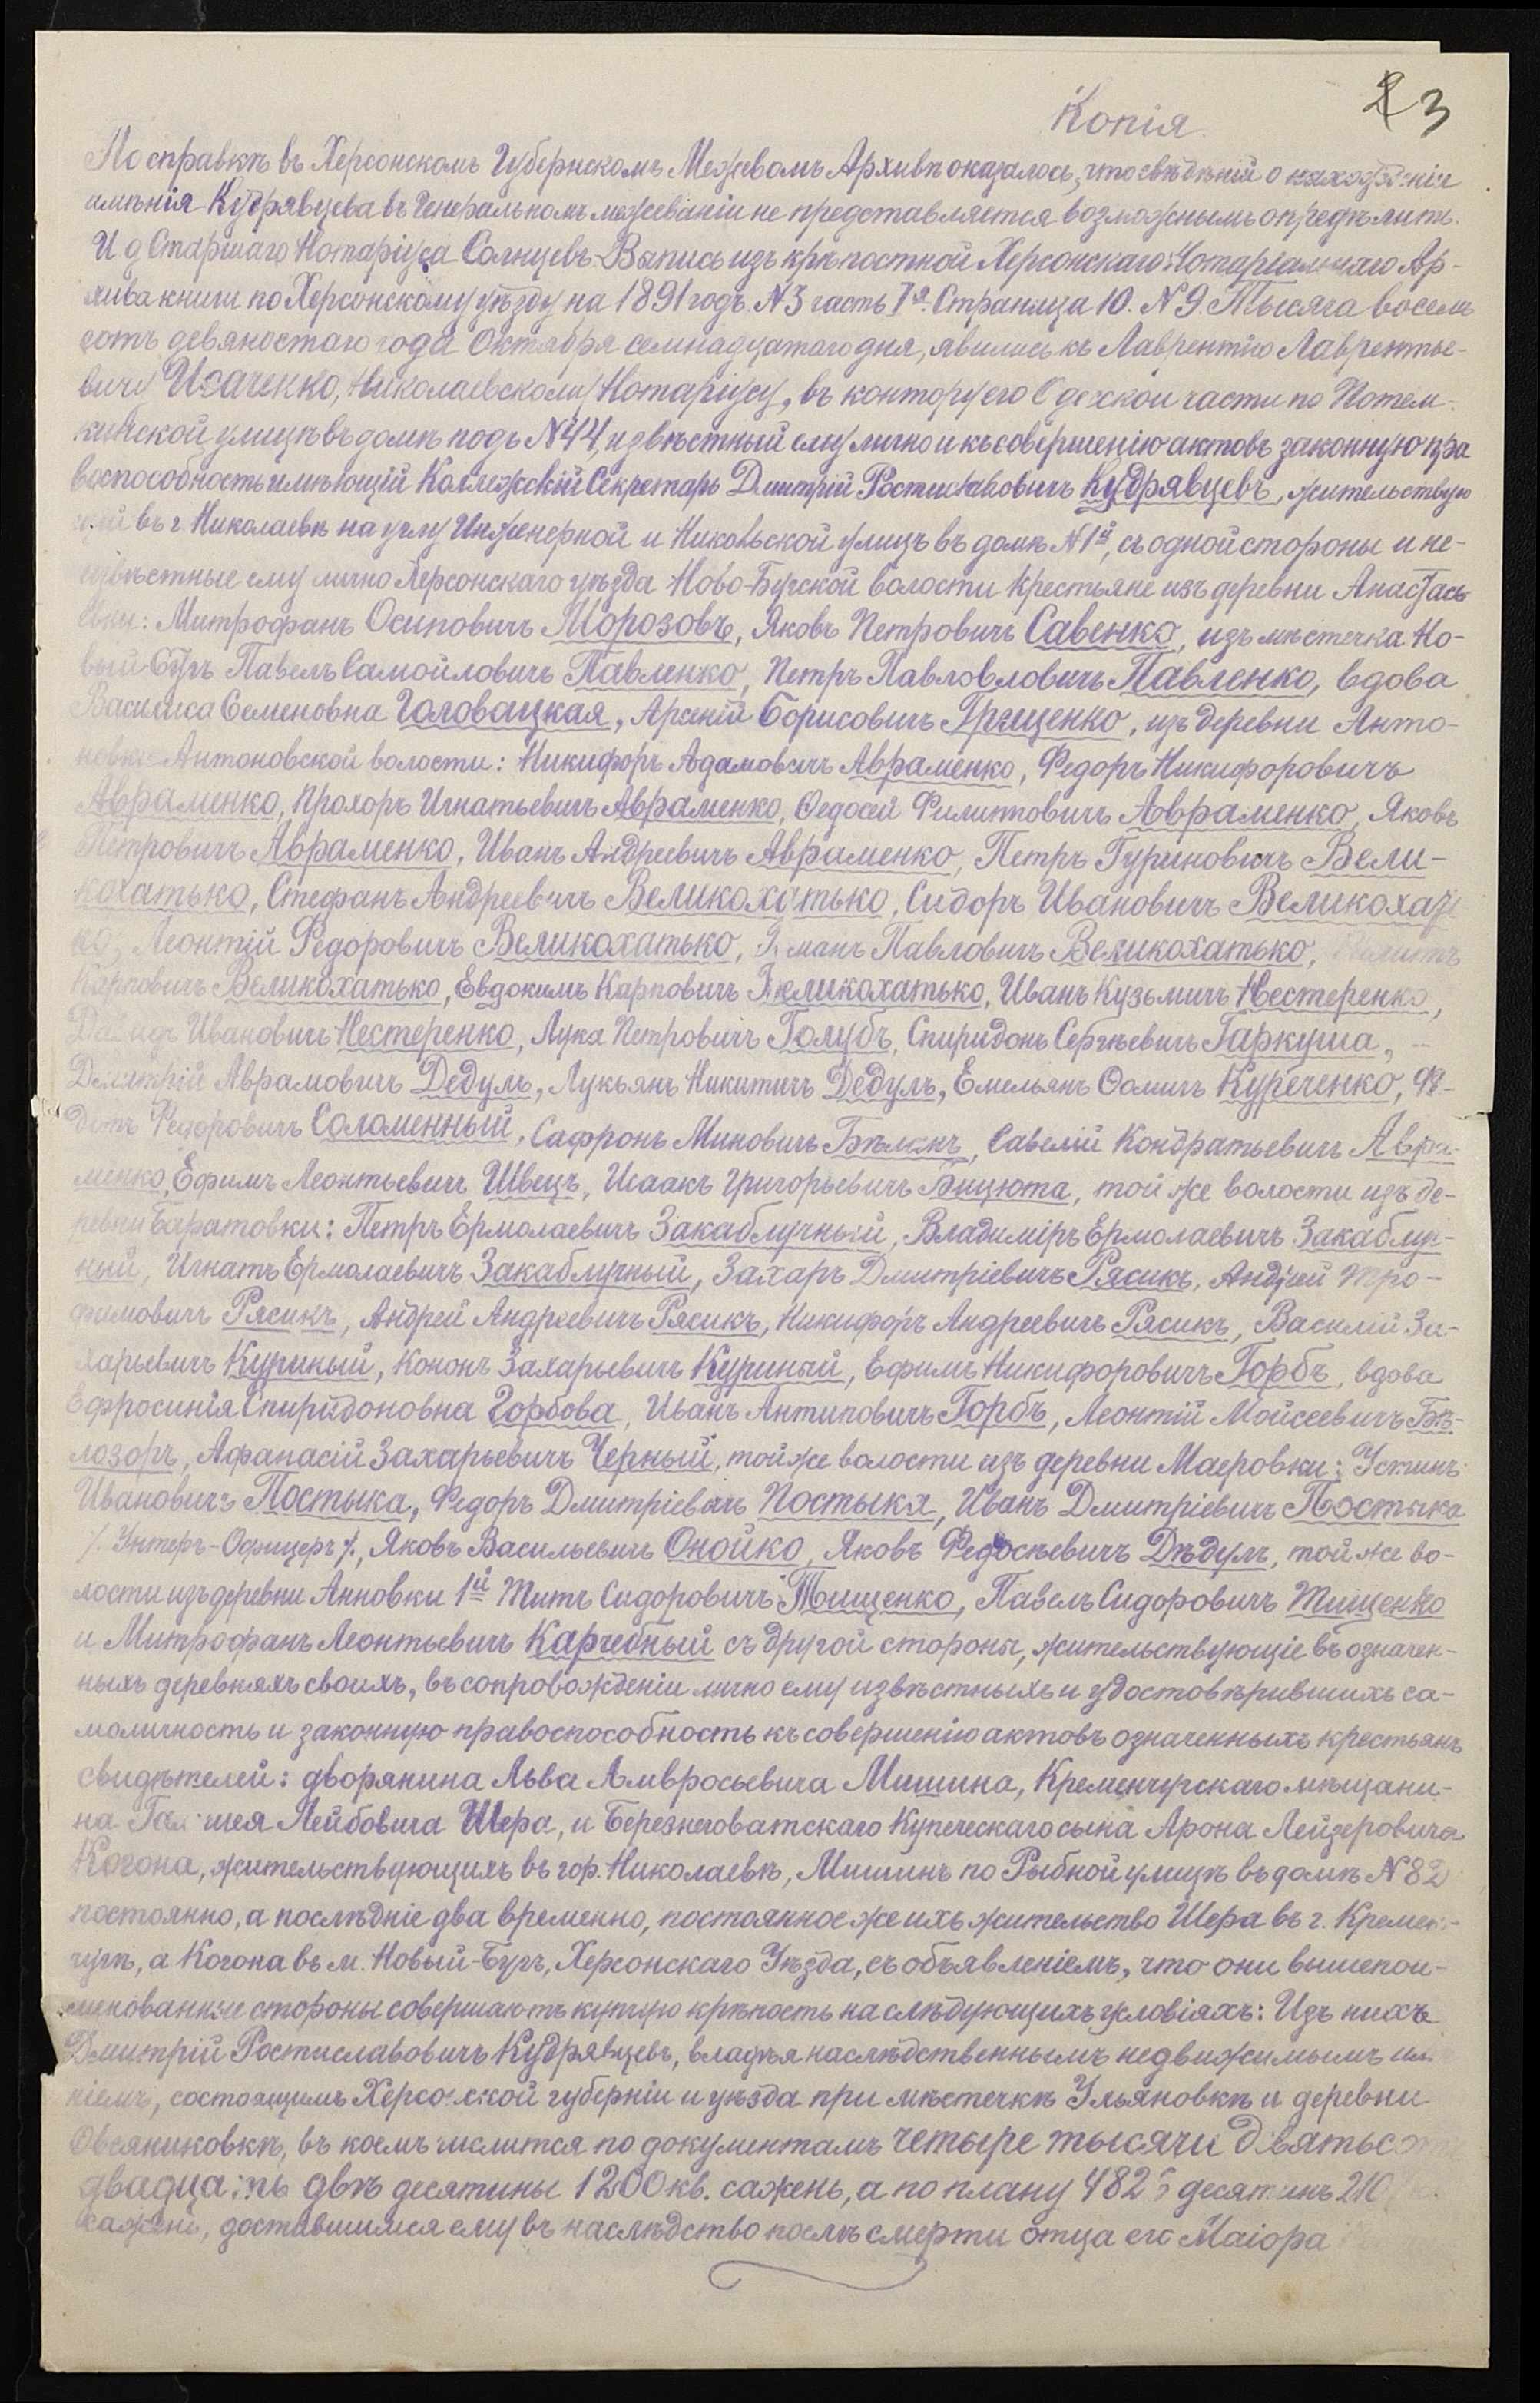 23
Копія.
По справкѣ въ Херсонскомъ Губернскомъ Межевомъ Архивѣ оказалось, что свѣдѣній о нахожденіи
имѣнія Кудрявцева въ Генеральномъ межеваніи не представляется возможнымъ опредѣлить.
И д Старшаго Нотаріуса Солнцевъ. Выпись изъ крѣпостной Херсонскаго Нотаріальнаго Ар-
хива книги по Херсонскому уѣзду на 1891 годъ. N3 часть 1я. Страница 10. N9. Тысяча восемь
сотъ девяностаго года Октября семнадцатаго дня, явились къ Лаврентію Лавренть-
вичу Исаченко, Николаевскому Нотаріусу, въ контору его Одесской части по Потем-
кинской улицѣ въ домѣ подъ N44, извѣстный ему лично и къ совершенію актовъ законную пра
воспособность имѣющій Коллежскій Секретарь Дмитрій Ростиславовичъ Кудрявцевъ, жительствую
щій въ г. Николаевѣ на углу Инженерной и Никольской улицъ въ домѣ N1й, съ одной стороны и не-
извѣстные ему лично Херсонскаго уѣзда Ново-Бугской волости крестьяне изъ деревни Анастась
евки: Митрофанъ Осиповичъ Морозовъ, Яковъ Петровичъ Савенко, изъ мѣстечка Но-
вый Бугъ Павелъ Самойловичъ Павленко, Петръ Павловловичъ Павленко, вдова
Василиса Семеновна Головацкая, Арсеній Борисовичъ Грищенко, изъ деревни Анто-
новки Антоновской волости: Никифоръ Адамовичъ Авраменко, Федоръ Никифоровичъ
Авраменко, Прохоръ Игнатьевичъ Авраменко, Федосей Филиповичъ Авраменко, Яковъ
Петровичъ Авраменко, Иванъ Андреевичъ Авраменко, Петръ Гуриновичъ Вели-
кохатько, Стефанъ Андреевичъ Великохатько, Сидоръ Ивановичъ Великохать
ко, Леонтій Федоровичъ Великохатько, Романъ Павловичъ Великохатько,
Карповичъ Великохатько, Евдокимъ Карповичъ Великохатько, Иванъ Кузьмичъ Нестеренко,
Ивановичъ Нестеренко, Лука Петровичъ Голубъ, Спиридонъ Сергѣевичъ Гаркуша,
Дмитрій Аврамовичъ Дедулъ, Лукьянъ Никитичъ Дедулъ, Емельянъ Фомичъ Куреченко, Ф-
дотъ Федоровичъ Соломенный, Сафронъ Миновичъ Бѣлекъ, Савелій Кондратьевичъ Авра-
менко, Ефимъ Леонтьевичъ Швецъ, Исаакъ Григорьевичъ Бицюта, той же волости изъ де-
ревни Баратовки: Петръ Ермолаевичъ Закаблучный, Владиміръ Ермолаевичъ Закаблуч-
ный, Игнатъ Ермолаевичъ Закаблучный, Захаръ Дмитріевичъ Рясикъ, Андрей Тро-
фимовичъ Рясикъ, Андрей Андреевичъ Рясикъ, Никифоръ Андреевичъ Рясикъ, Василій За-
харьевичъ Куриный, Кононъ Захарьевичъ Куриный, Ефимъ Никифоровичъ Горбъ, вдова
Ефросинія Спиридоновна Горбова, Иванъ Антиповичъ Горбъ, Леонтій Мойсеевичъ Бѣ-
лозоръ, Афанасій Захарьевичъ Черный, той же волости изъ деревни Маеровки: Устинъ
Ивановичъ Постыка, Федоръ Дмитріевичъ Постыка, Иванъ Дмитріевичъ Постыка
/. Унтеръ-Офицеръ /., Яковъ Васильевичъ Онойко, Яковъ Федосѣевичъ Дѣдулъ, той же во-
лости изъ деревни Анновки 1й Титъ Сидоровичъ Тищенко, Павелъ Сидоровичъ Тищенко
и Митрофанъ Леонтьевичъ Карчебный съ другой стороны, жительствующіе въ означен-
ныхъ деревняхъ своихъ, въ сопровожденіи лично ему извѣстныхъ и удостовѣрившихъ са-
моличность и законную правоспособность къ совершенію актовъ означенныхъ крестьянъ
свидѣтелей: дворянина Льва Амвросьевича Мишина, Кременчугскаго мѣщани-
на Лейбовича Шера, и Березнеговатскаго Купеческаго сына Арона Лейзеровича
Когона, жительствующихъ въ гор. Николаевѣ, Мишинъ по Рыбной улицѣ въ домѣ N82
постоянно, а послѣдніе два временно, постоянное же ихъ жительство Шера въ г. Кремен-
чугѣ, а Когона въ м. Новый-Бугъ, Херсонскаго Уѣзда, съ объявленіемъ, что они вышепои-
менованные стороны совершаютъ купчую крѣпость на слѣдующихъ условіяхъ: Изъ нихъ
Дмитрій Ростиславовичъ Кудрявцевъ, владѣя наслѣдственнымъ недвижимымъ имѣ
ніемъ, состоящимъ Херсонской губерніи и уѣзда при мѣстечкѣ Ульяновкѣ и деревни
Овсяниковкѣ, въ коемъ числится по документамъ четыре тысячи девятьсотъ
двадцать двѣ десятины 1200 кв. сажень, а по плану десятинъ 210
сажень, доставшимся ему въ наслѣдство послѣ смерти отца его Маіора